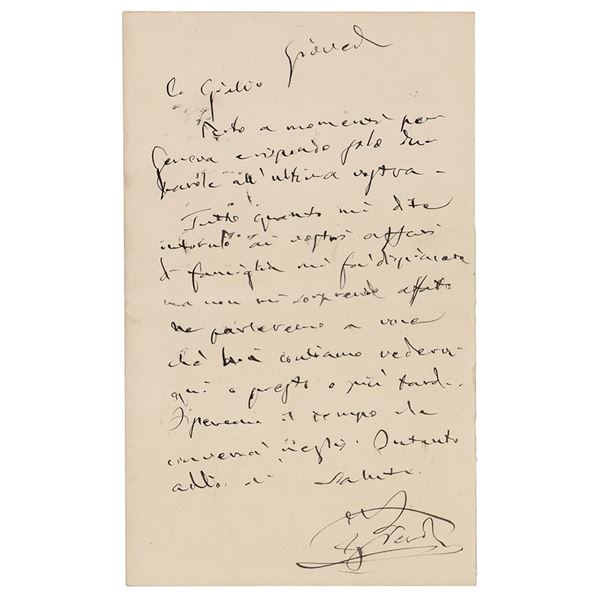 Giovedì
C. Giulio
Parto a momenti per
Genova e rispondo solo due
parole all'ultima vostra -
Tutto quanto mi dite
intorno ai vostri affari
di famiglia mi fa dispiacere
ma non mi sorprende affatto
ne parleremo a voce
chè contiamo vedervi
qui o presto o più tardi.
Speriamo il tempo che
converrà meglio. Intanto
addio. Saluti.
G Verdi